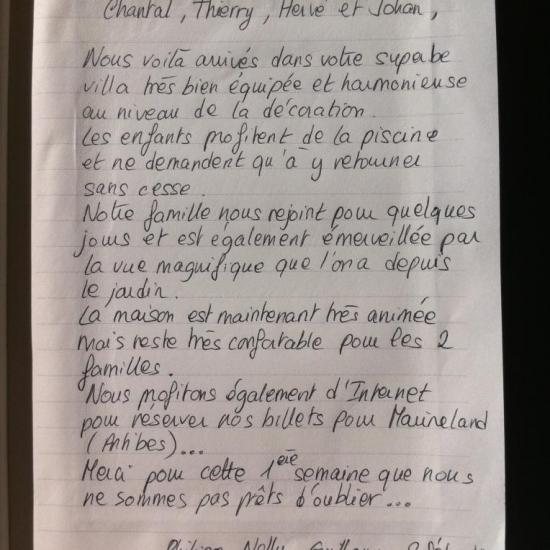 Chantal, Thierry, Hervé et Johan,
Nous voilà arrivés dans votre superbe
villa très bien équipée et harmonieuse
au niveau de la décoration.
Les enfants profitent de la piscine
et ne demandent qu'à y retourner
sans cesse.
Notre famille nous rejoint pour quelques
jours et est également émerveillée par
la vue magnifique que l'on a depuis
le jardin.
La maison est maintenant très animée
mais reste très confortable pour les 2
familles.
Nous profitons également d'Internet
pour réserver nos billets pour Marineland
(Antibes)...
Merci pour cette 1ère semaine que nous
ne sommes pas prêts d'oublier...